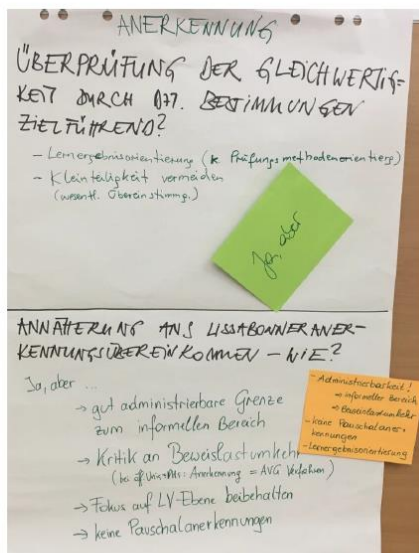 ANERKENNUNG
ÜBERPRÜFUNG DER GLEICHWERTIG-
KEIT DURCH DZT. BESTIMMUNGEN
ZIELFÜHREND?
- Lernergebnisorientierung (k. Prüfungsmethodenorientierg)
- Kleinteiligkeit vermeiden
(wesentl. Übereinstimmg.)
Ja, aber
ANNÄHERUNG ANS LISSABONNER ANER-
KENNUNGSÜBEREINKOMMEN - WIE?
Ja, aber ...
→ gut administrierbare Grenze
zum informellen Bereich
→ Kritik an Beweislastumkehr
(bei öff. Unis + PHs: Anerkennung = AVG Verfahren)
→ Fokus auf LV-Ebene beibehalten
→ keine Pauschalanerkennungen
- Administrierbarkeit!
→ informeller Bereich
→ Beweislastumkehr
- keine Pauschalaner-
kennungen
- Lernergebnisorientierung